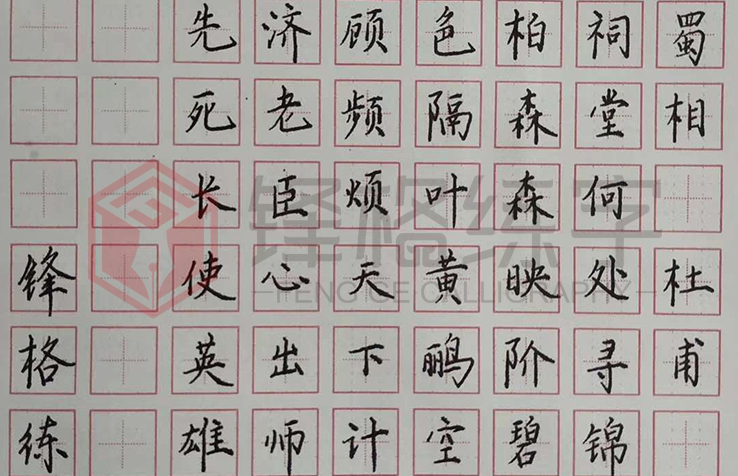 蜀相 杜甫
祠堂何处寻锦
柏森森映阶碧
色隔叶黄鹂空
顾频烦天下计
济老臣心出师
先死长使英雄
锋格练
锋格练字
FENG GE CALLIGRAPHY